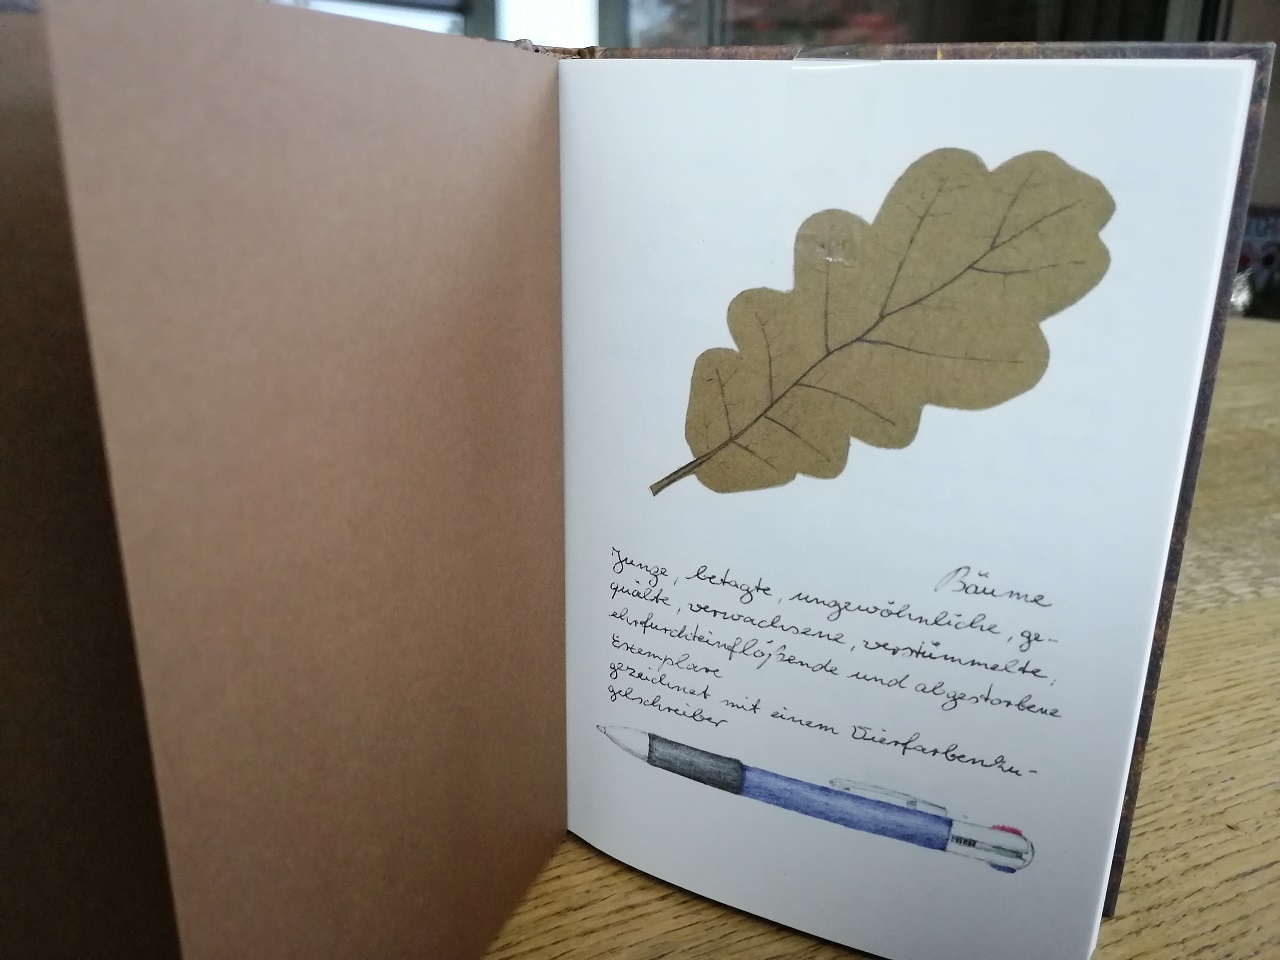 Bäume
Junge, betagte, ungewöhnliche, ge-
quälte, verwachsene, verstümmelte,
ehrfurchteinflößende und abgestorbene
Exemplare
gezeichnet mit einem Vierfarbenku-
gelschreiber